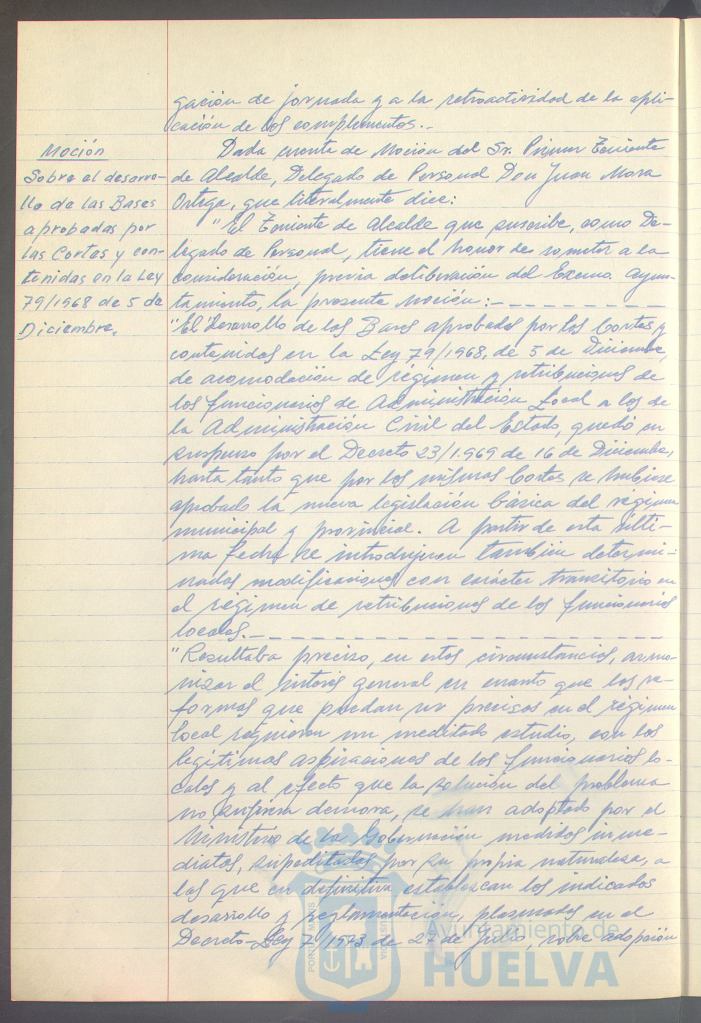 gación de jornada y a la retroactividad de la apli-
cación de los complementos.-
Moción
Sobre el desarro-
llo de las Bases
aprobadas por
las Cortes y con-
tenidas en la Ley
79/1968 de 5 de
Diciembre.
Dada cuenta de Moción del Sr. Primer Teniente
de Alcalde, Delegado de Personal Don Juan Mora
Ortega, que literalmente dice:
"El Teniente de Alcalde que suscribe, como De-
legado de Personal, tiene el honor de someter a la
consideración, previa deliberación del Excmo. Ayun-
tamiento, la presente moción:- - - - - - - - - -
"El Desarrollo de las Bases aprobadas por las Cortes y
contenidas en la Ley 79/1968, de 5 de Diciembre,
de acomodación de régimen y retribuciones de
los funcionarios de Administración Local a los de
la Administración Civil del Estado, quedó en
suspenso por el Decreto 23/1.969 de 16 de Diciembre,
hasta tanto que por las mismas Cortes se hubiese
aprobado la nueva legislación básica del régimen
municipal y provincial. A partir de esta últi-
ma fecha se introdujeron también determi-
nadas modificaciones con carácter transitorio en
el régimen de retribuciones de los funcionarios
locales.- - - - - - - - - - - - - - - - - - -
"Resultaba preciso, en estas circunstancias, armo-
nizar el interés general en cuanto que las re-
formas que puedan ser precisas en el régimen
local requieren un meditado estudio, con las
legítimas aspiraciones de los funcionarios lo-
cales y al efecto que la solución del problema
no sufriera demora, se han adoptado por el
Ministerio de la Gobernación medidas inme-
diatas, supeditadas por su propia naturaleza, a
las que en definitiva establezcan los indicados
desarrollo y reglamentación, plasmadas en el
Decreto-Ley 7/1973 de 27 de Julio, sobre adopción
Ayuntamiento de
HUELVA